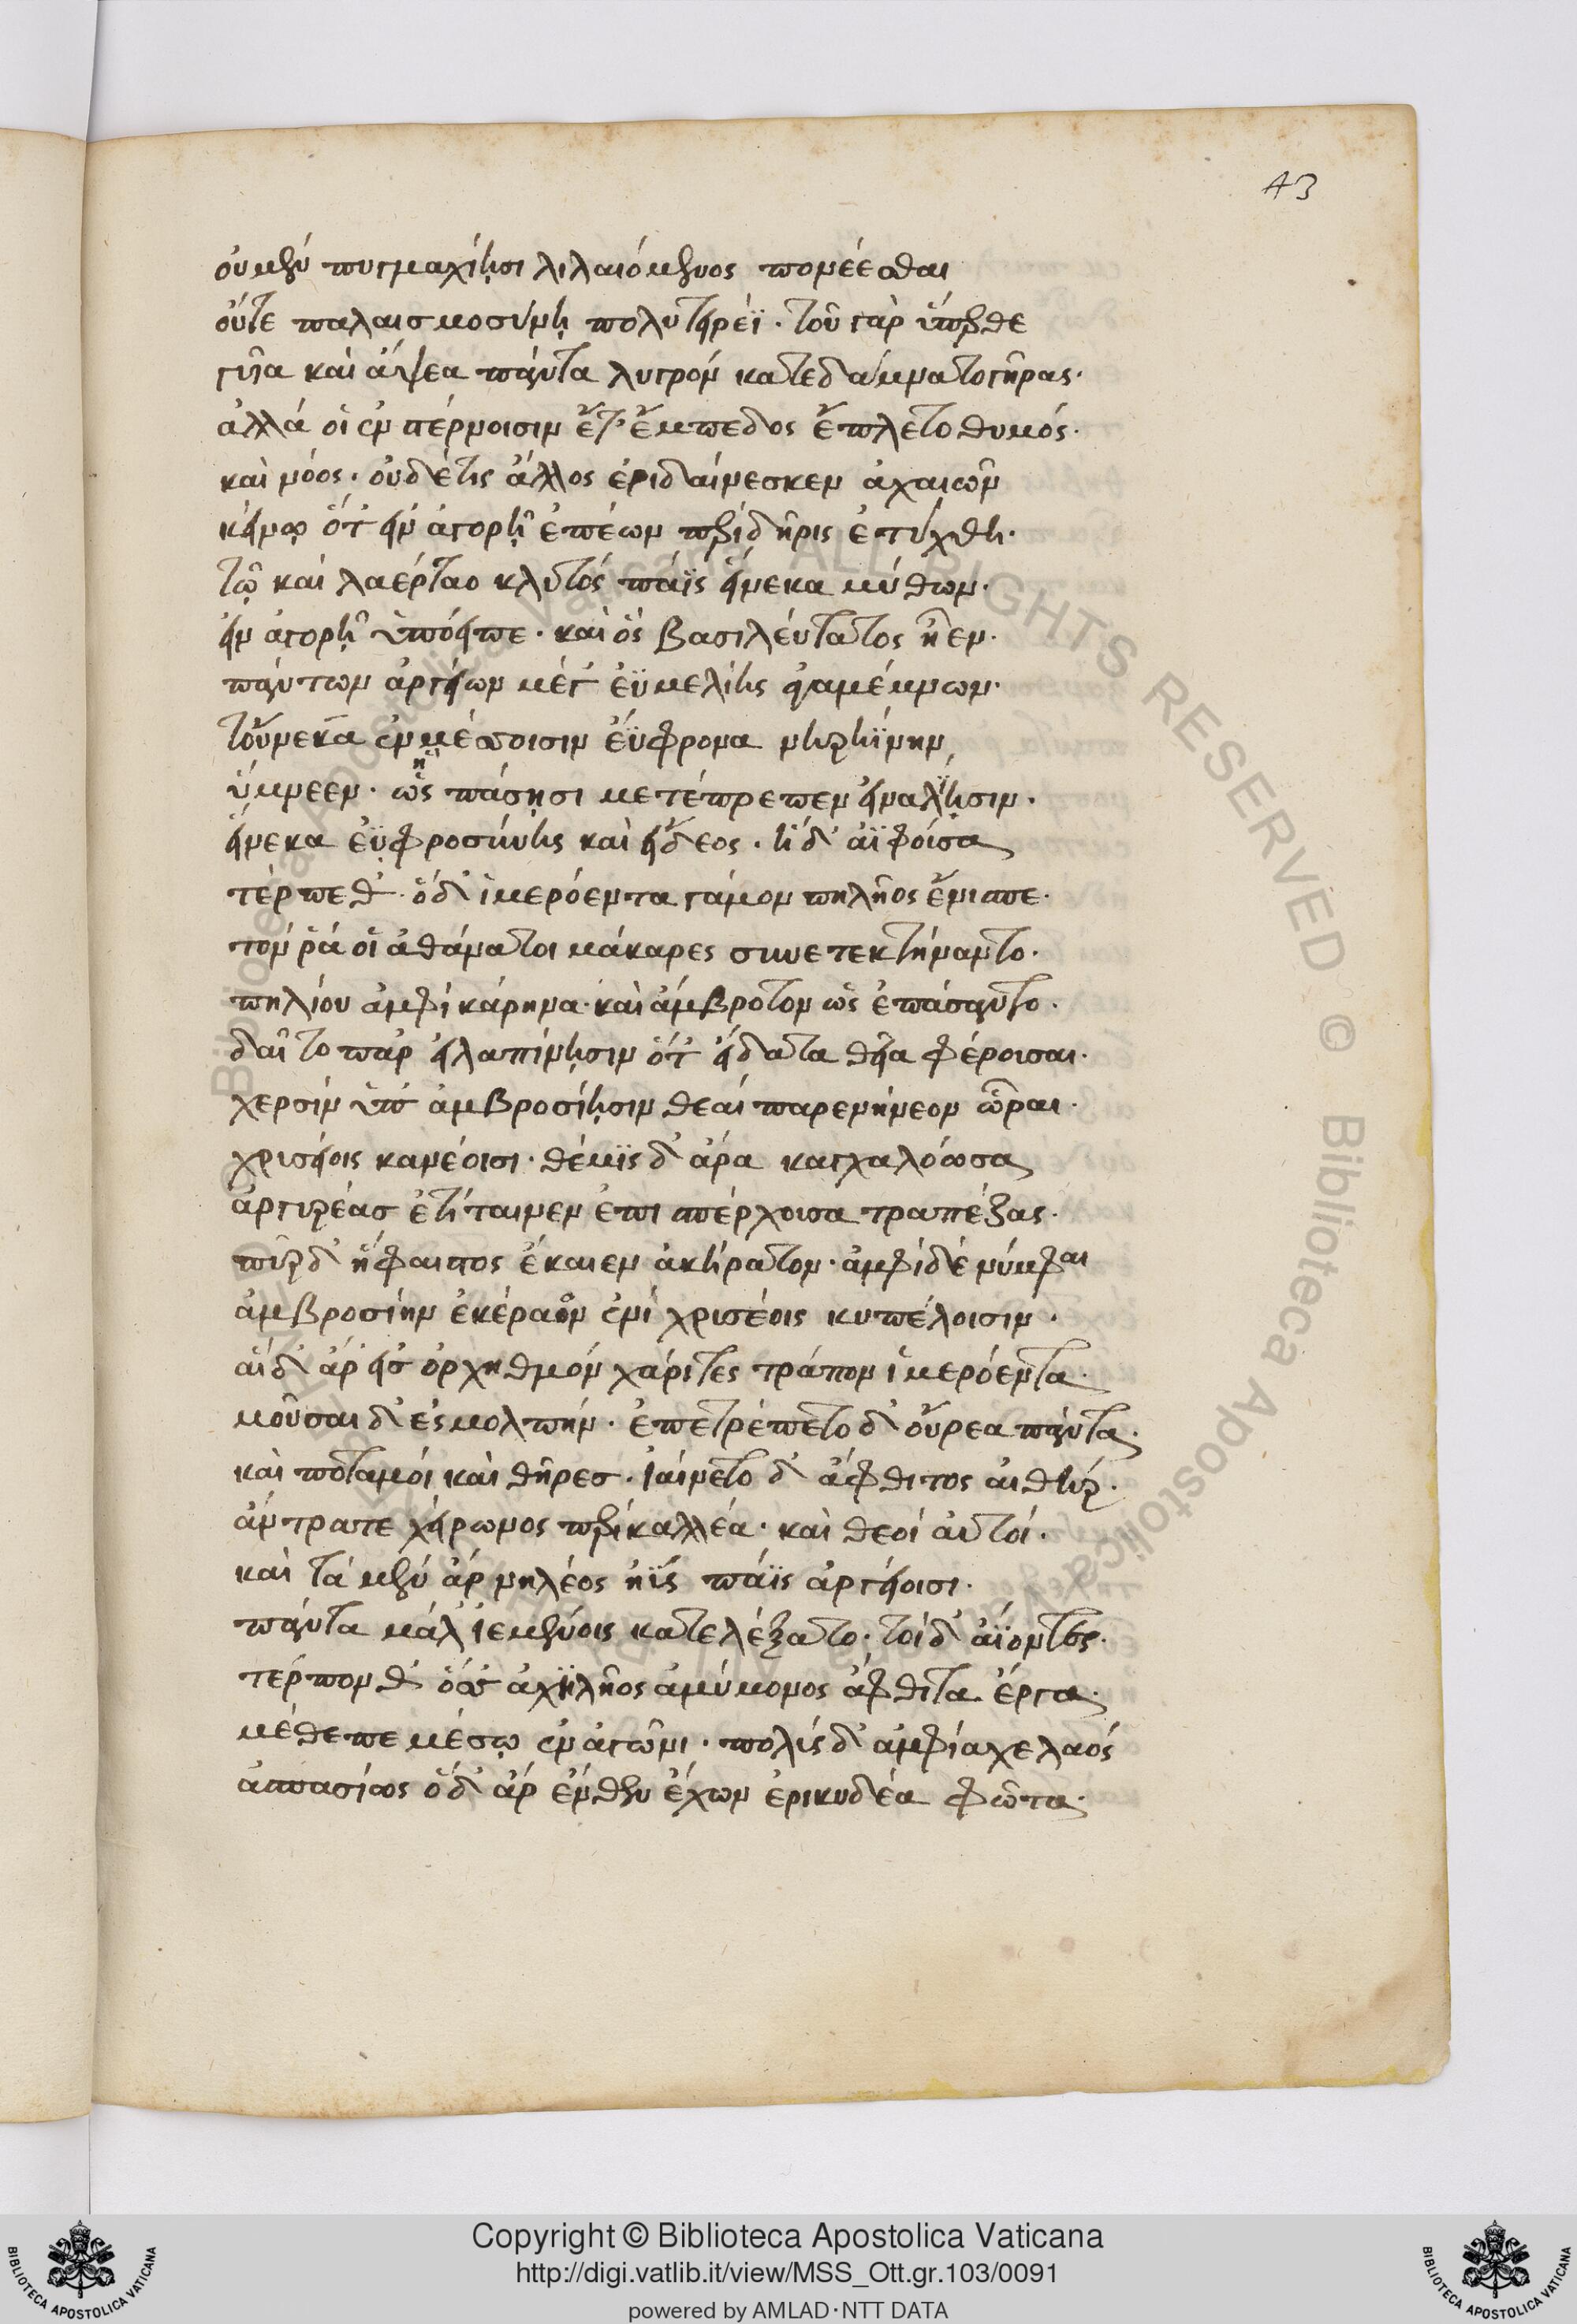 43
οὐ μὲν πυγμαχίῃσι λιλαιόμενος πονέεσθαι
οὔτε παλαισμοσύνῃ πολυτειρέϊ. τοῦ γὰρ ὕπερθε
γυῖα καὶ ἅψεα πάντα λυγρὸν κατεδάμνατο γῆρας.
ἀλλά οἱ ἐν στέρνοισιν ἔτ' ἔμπεδος ἔπλετο θυμός.
καὶ νόος. οὐδέ τις ἄλλος ἐριδαίνεσκεν ἀχαιῶν
κείνῳ ὅτ' εἰν ἀγορῇ ἐπέων περὶ δῆρις ἐτύχθη.
τῷ καὶ λαέρταο κλυτὸς πάϊς εἵνεκα μύθων.
εἰν ἀγορῇ ὑπόειπε. καὶ ὃς βασιλεύτατος ἦεν.
πάντων ἀργείων μέγ' ἐϋμελίης ἀγαμέμνων.
τοὔνεκα ἐν μέσσοισιν ἐΰφρονα νηρηΐνην
ὕμνεεν. ὡς πάσῃσι μετέπρεπεν εἰναλίῃσιν.
εἵνεκα ἐϋφροσύνης καὶ εἴδεος. ἡ δ' ἀΐουσα
τέρπεθ'. ὁ δ' ἱμερόεντα γάμον πηλῆος ἔνισπε.
τόν ῥά οἱ ἀθάνατοι μάκαρες συνετεκτήναντο.
πηλίου ἀμφὶ κάρηνα. καὶ ἄμβροτον ὡς ἐπάσαντο.
δαῖτο παρ' εἰλαπίνῃσιν ὅτ' εἴδατα θεῖα φέρουσαι.
χερσὶν ὑπ' ἀμβροσίῃσιν θεαὶ παρενήνεον ὧραι.
χρυσείοις κανέοισι. θέμις δ' ἄρα καγχαλόωσα
ἀργυρέας ἐτίταινεν ἐπισπέρχουσα τραπέζας.
πῦρ δ' ἥφαιστος ἔκαιεν ἀκήρατον. ἀμφὶ δὲ νύμφαι
ἀμβροσίην ἐκέραον ἐνὶ χρυσέοις κυπέλοισιν.
αἱ δ' ἄρ' εἰς ὀρχηθμὸν χάριτες τράπον ἱμερόεντα.
μοῦσαι δ' ἐς μολπήν. ἐπετρέπετο δ' οὔρεα πάντα.
καὶ ποταμοὶ καὶ θῆρες. ἰαίνετο δ' ἄφθιτος αἰθήρ.
ἄντρα τε χείρωνος περικαλλέα. καὶ θεοὶ αὐτοί.
καὶ τὰ μὲν ἂρ νηλέος ἠῢς πάϊς ἀργείοισι.
πάντα μάλ' ἱεμένοις κατελέξατο. τοὶ δ' ἀΐοντες.
τέρπονθ' ὃς ἀχϊλῆος ἀμύμονος ἄφθιτα ἔργα.
μέθεπε μέσῳ ἐν ἀγῶνι. πολὺς δ' ἀμφίαχε λαός
ἀσπασίως ὁ δ' ἄρ' ἔνθεν ἔχων ἐρικυδέα φῶτα.
Copyright © Biblioteca Apostolica Vaticana
http://digi.vatlib.it/view/MSS_Ott.gr.103/0091
powered by AMLAD·NTT DATA